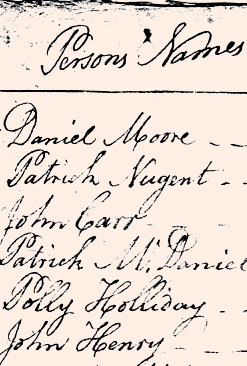 Persons Names
Daniel Moore
Patrick Nugent
John Carr
Patrick Mc. Daniel
Polly Holliday
John Henry